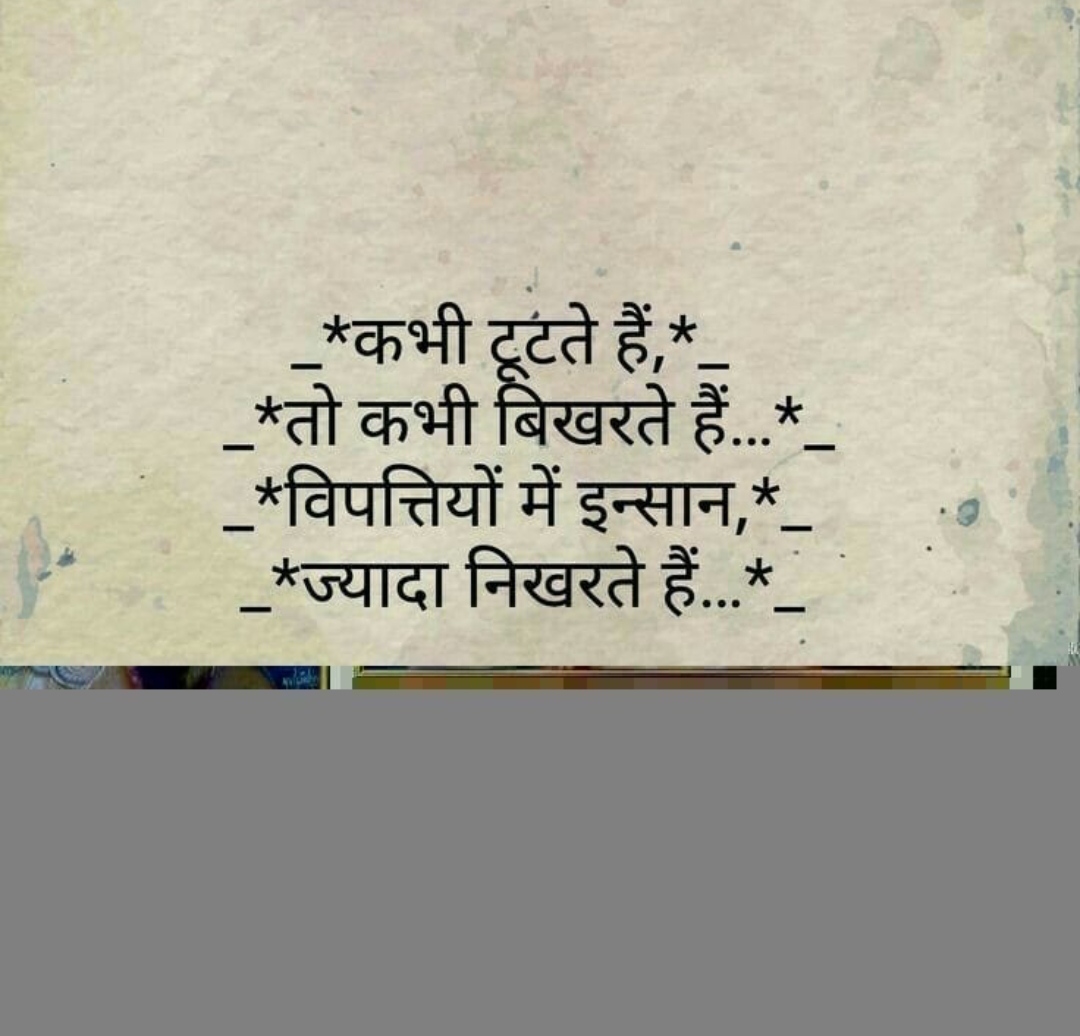 _*कभी टूटते हैं,*_
_*तो कभी बिखरते हैं...*_
_*विपत्तियों में इन्सान,*_
_*ज्यादा निखरते हैं...*_